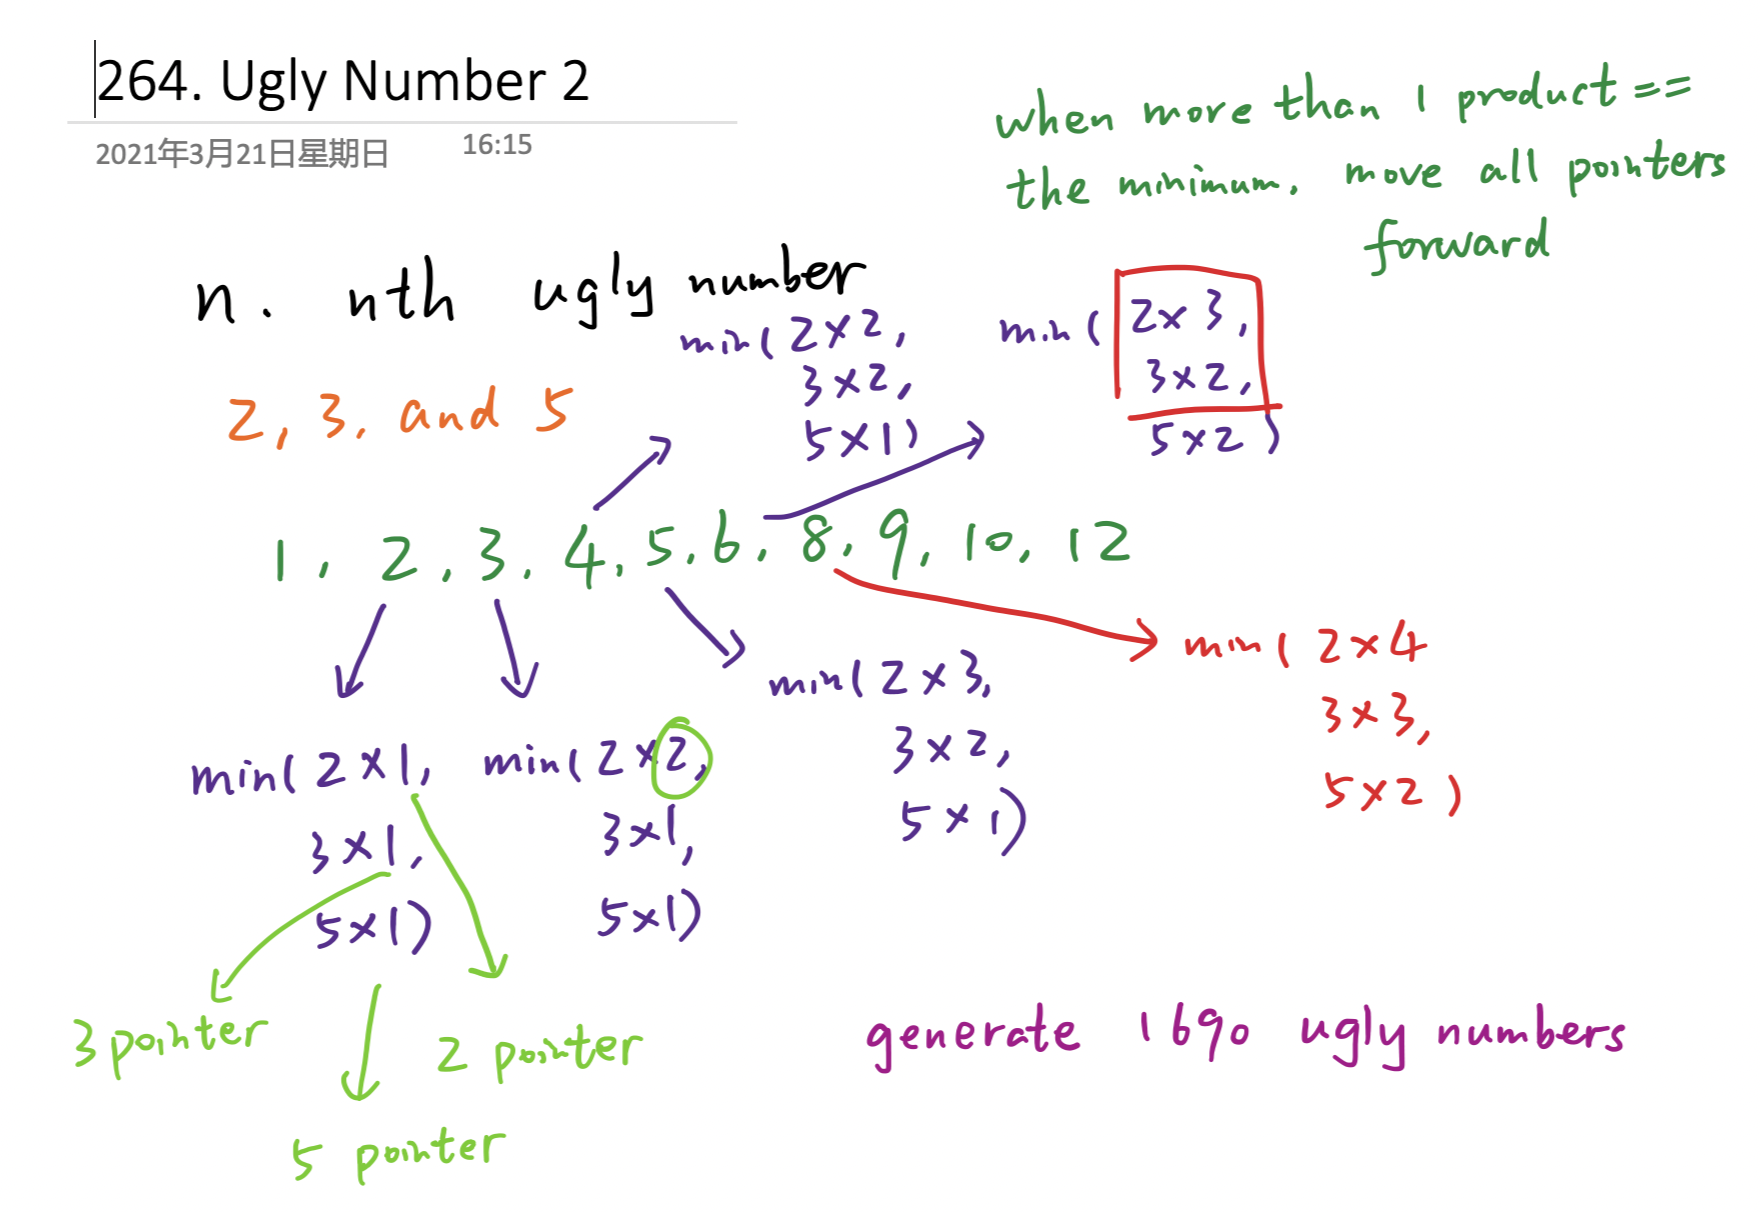 264. Ugly Number 2
2021年3月21日星期日 16:15
when more than 1 product ==
the minimum, move all pointers
forward
n. nth ugly number
2, 3, and 5
min( 2×2,
3×2,
5×1)
min( 2×3,
3×2,
5×2 )
1, 2, 3, 4, 5, 6, 8, 9, 10, 12
min( 2×1,
3×1,
5×1)
min( 2×2,
3×1,
5×1)
min( 2×3,
3×2,
5×1)
min( 2×4
3×3,
5×2 )
3 pointer
2 pointer
5 pointer
generate 1690 ugly numbers